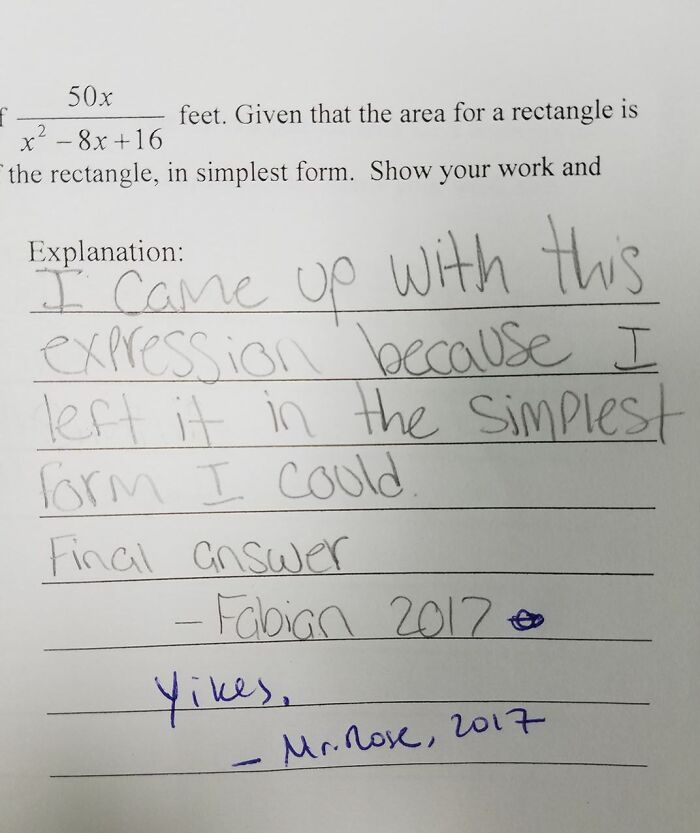 f 50x / x² − 8x + 16 feet. Given that the area for a rectangle is
the rectangle, in simplest form. Show your work and
Explanation:
I came up with this
expression because I
left it in the simplest
form I could.
Final answer
– Fabian 2017
Yikes,
– Mr. Rose, 2017